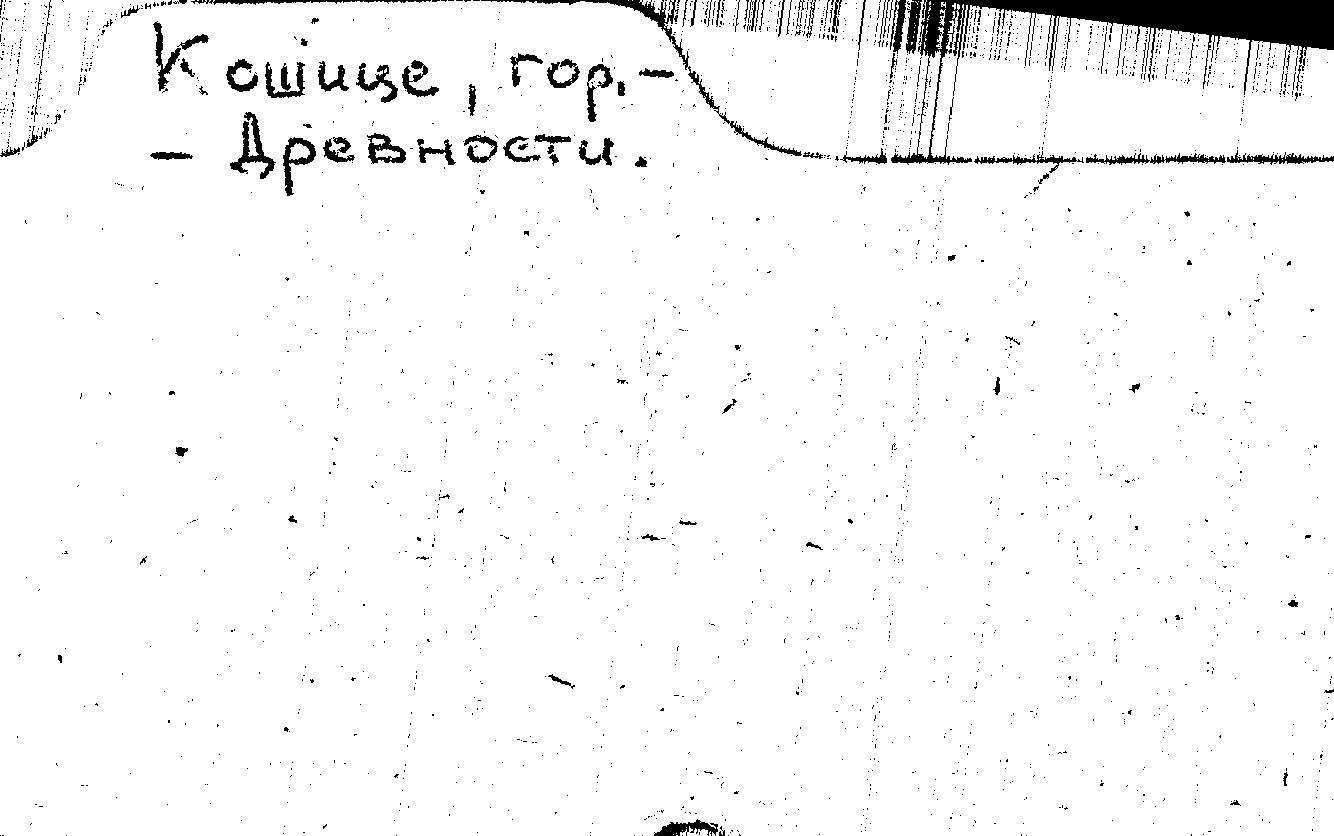 Кошице, гор. –
– Древности.